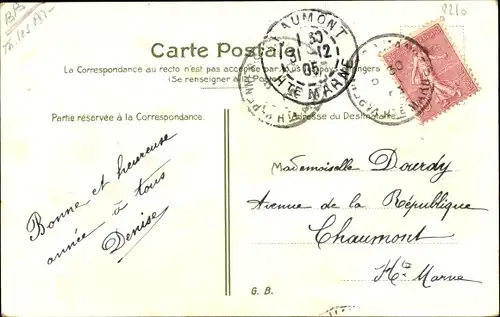 Carte Postale
La Correspondance au recto n'est pas acceptée par tous pays étrangers
(Se renseigner à la Poste)
CHAUMONT
1 30
31 12
05
HTE MARNE
Partie réservée à la Correspondance.
Adresse du Destinataire.
Bonne et heureuse
année à tous
Denise
Mademoiselle Dourdy
Avenue de la République
Chaumont
Hte Marne
G. B.